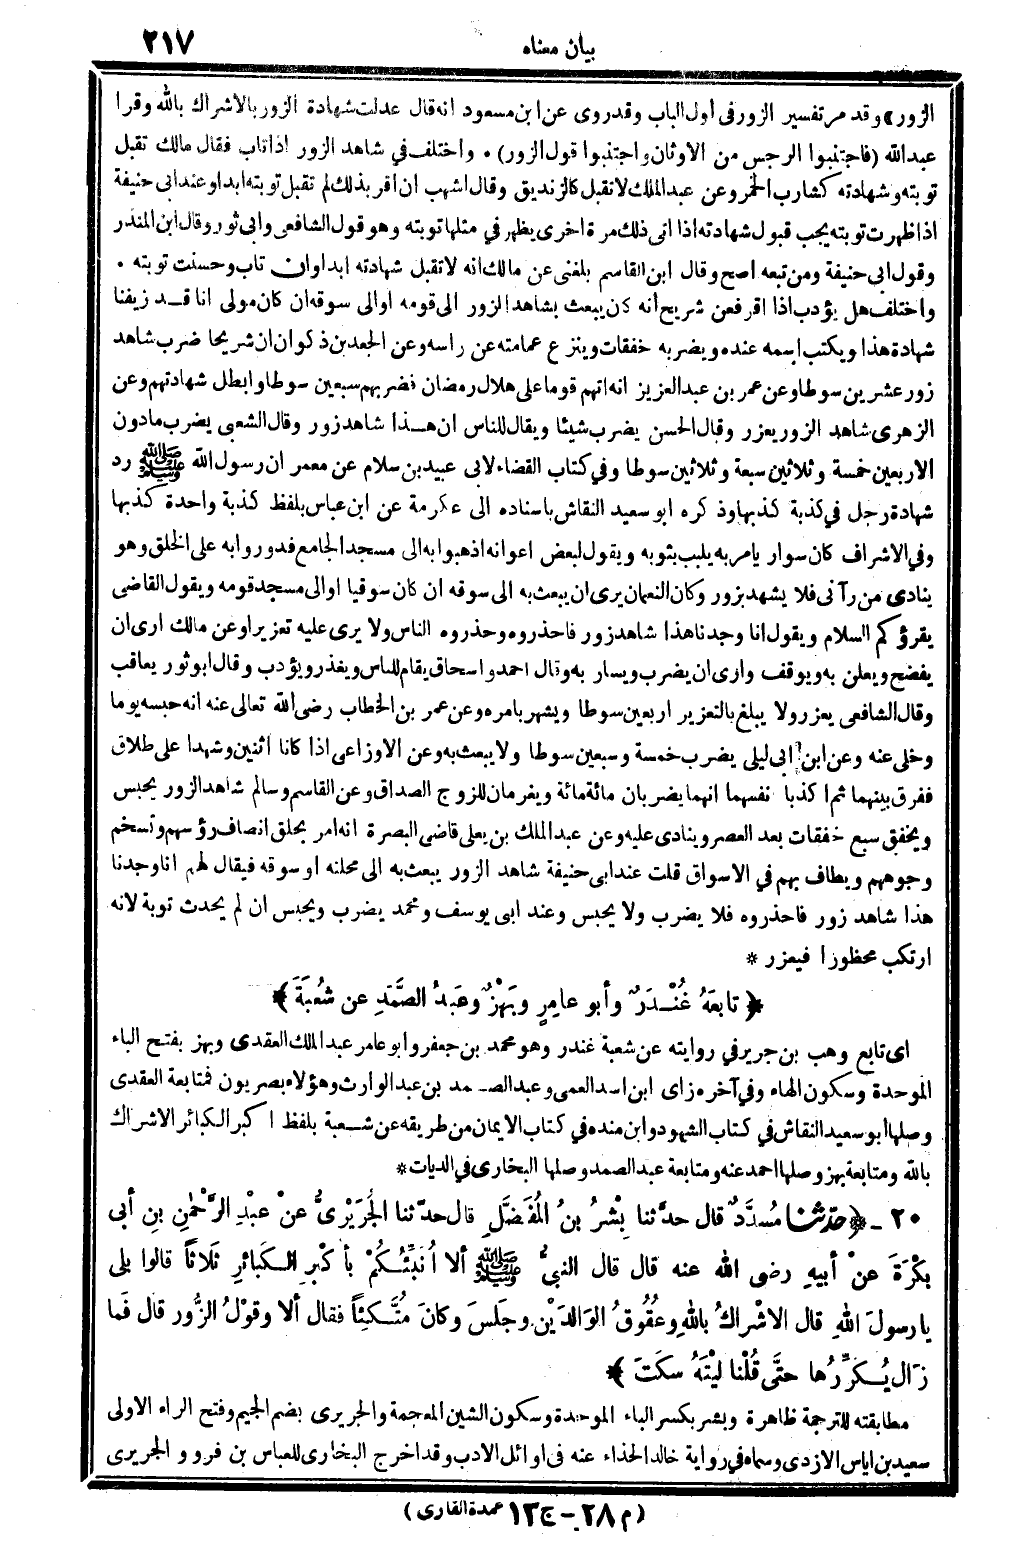 ٢١٧
بيان معناه
الزور ﴾ وقد مر تفسير الزور فى أول الباب وقدروى عن ابن مسعود انه قال عدلت شهادة الزور بالاشراك بالله وقرا
عبدالله (فاجتنبوا الرجس من الاوثان واجتنبوا قول الزور) . واختلف في شاهد الزور اذا تاب فقال مالك تقبل
توبته وشهادته كشارب الخمر وعن عبد الملك لا تقبل كالزنديق وقال اشهب ان اقر بذلك لم تقبل توبته ابدا وعند ابى حنيفة
اذا ظهرت توبته يجب قبول شهادته اذا اتى ذلك مرة اخرى يظهر في مثلها توبته وهو قول الشافعى وابى ثور وقال ابن المنذر
وقول ابى حنيفة ومن تبعه اصح وقال ابن القاسم بلغنى عن مالك انه لا تقبل شهادته ابدا وان تاب وحسنت توبته .
واختلف هل يؤدب اذا اقر فعن شريح أنه كان يبعث بشاهد الزور الى قومه او الى سوقه ان كان مولى انا قد زيفنا
شهادة هذا ويكتب اسمه عنده ويضربه خفقات وينزع عمامته عن راسه وعن الجعد بن ذكوان ان شريحا ضرب شاهد
زور عشرين سوطا وعن عمر بن عبد العزيز انه اتهم قوما على هلال رمضان فضربهم سبعين سوطا وابطل شهادتهم وعن
الزهرى شاهد الزور يعزر وقال الحسن يضرب شيئا ويقال للناس ان هذا شاهد زور وقال الشعبى يضرب مادون
الاربعين خمسة وثلاثين سبعة وثلاثين سوطا وفي كتاب القضاء لابى عبيد بن سلام عن معمر ان رسول الله ﷺ رد
شهادة رجل في كذبة كذبها وذكره ابو سعيد النقاش باسناده الى عكرمة عن ابن عباس بلفظ كذبة واحدة كذبها
وفي الاشراف كان سوار يامر به يلبب بثوبه ويقول لبعض اعوانه اذهبوا به الى مسجد الجامع فدوروا به على الخلق وهو
ينادى من رآنى فلا يشهد بزور وكان النعمان يرى ان يبعث به الى سوقه ان كان سوقيا او الى مسجد قومه ويقول القاضى
يقرؤكم السلام ويقول انا وجدنا هذا شاهد زور فاحذروه وحذروه الناس ولا يرى عليه تعزيرا وعن مالك ارى ان
يفضح ويعلن به ويوقف وارى ان يضرب ويسار به وقال احمد واسحاق يقام للناس ويغذر ويؤدب وقال ابو ثور يعاقب
وقال الشافعى يعزر ولا يبلغ بالتعزير اربعين سوطا ويشهر بامره وعن عمر بن الخطاب رضى الله تعالى عنه انه حبسه يوما
وخلى عنه وعن ابن ابى ليلى يضرب خمسة وسبعين سوطا ولا يبعث به وعن الاوزاعى اذا كانا اثنين وشهدا على طلاق
ففرق بينهما ثم اكذبا نفسهما انهما يضربان مائة مائة ويغرمان للزوج الصداق وعن القاسم وسالم شاهد الزور يحبس
ويخفق سبع خفقات بعد العصر وينادى عليه وعن عبد الملك بن يعلى قاضى البصرة انه امر بحلق انصاف رؤسهم وتسخم
وجوههم ويطاف بهم في الاسواق قلت عند ابى حنيفة شاهد الزور يبعث به الى محلته او سوقه فيقال لهم انا وجدنا
هذا شاهد زور فاحذروه فلا يضرب ولا يحبس وعند ابى يوسف ومحمد يضرب ويحبس ان لم يحدث توبة لانه
ارتكب محظورا فيعزر *
﴿ تابعَهُ غُنْدَرٌ وأبو عامِرٍ وبَهْزٌ وعَبدُ الصَّمَدِ عن شُعبَةَ ﴾
اى تابع وهب بن جرير في روايته عن شعبة غندر وهو محمد بن جعفر وابو عامر عبد الملك العقدى وبهز بفتح الباء
الموحدة وسكون الهاء وفي آخره زاى ابن اسد العمى وعبد الصمد بن عبد الوارث وهؤلاء بصريون فمتابعة العقدى
وصلها أبو سعيد النقاش في كتاب الشهود وابن منده في كتاب الايمان من طريقه عن شعبة بلفظ اكبر الكبائر الاشراك
بالله ومتابعة بهز وصلها احمد عنه ومتابعة عبد الصمد وصلها البخارى في الديات *
٢٠ - ﴿ حدّثنا مُسدَّدٌ قال حدّثنا بِشْرُ بنُ المُفَضَّلِ قال حدّثنا الجُرَيْرِىُّ عنْ عبْدِ الرَّحْمٰنِ بنِ أبى
بَكْرَةَ عنْ أبيهِ رضى الله عنه قال قال النبىُّ ﷺ ألا أُنَبِّئُكُمْ بأكْبرِ الكَبائرِ ثَلاثاً قالوا بلى
يا رسولَ اللهِ قال الاشْراكُ باللهِ وعُقُوقُ الوَالدَيْنِ وجَلَسَ وكانَ مُتَّكِئاً فقال ألا وقوْلُ الزُّورِ قال فَما
زَالَ يُكَرِّرُها حتَّى قُلْنا لَيْتَهُ سكَتَ ﴾
مطابقته للترجمة ظاهرة وبشر بكسر الباء الموحدة وسكون الشين المعجمة والجريرى بضم الجيم وفتح الراء الاولى
سعيد بن اياس الازدى وسماه في رواية خالد الحذاء عنه فى اوائل الادب وقد اخرج البخارى للعباس بن فروو الجريرى
(م ٢٨ - ج ١٣ عمدة القارى)